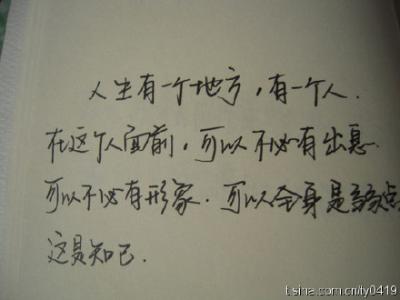 人生有一个地方，有一个人.
在这个人面前，可以不必有出息.
可以不必有形象.可以全身是弱点.
这是知己.
t.sina.com.cn/ty0419